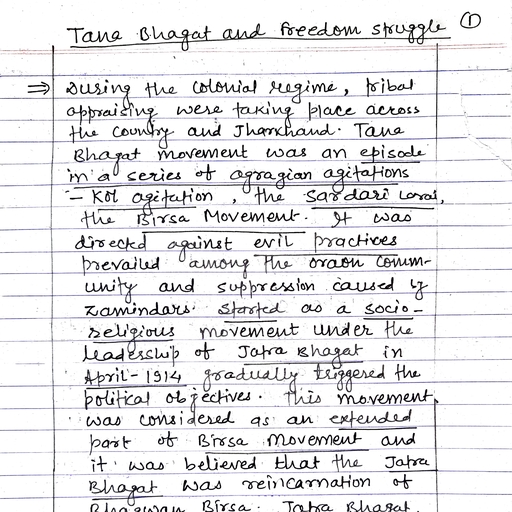 Tana Bhagat and freedom struggle ①
⇒ During the colonial regime, tribal
appraising were taking place across
the country and Jharkhand. Tana
Bhagat movement was an episode
in a series of agragian agitations
- Kol agitation, the Sardari Larai,
the Birsa Movement. It was
directed against evil practices
prevailed among the oraon comm-
unity and suppression caused by
zamindars. Started as a socio-
religious movement under the
leadership of Jatra Bhagat in
April-1914 gradually triggered the
political objectives. This movement,
was considered as an extended
part of Birsa Movement and
it was believed that the Jatra
Bhagat was reincarnation of
Bhagwan Birsa. Jatra Bhagat,